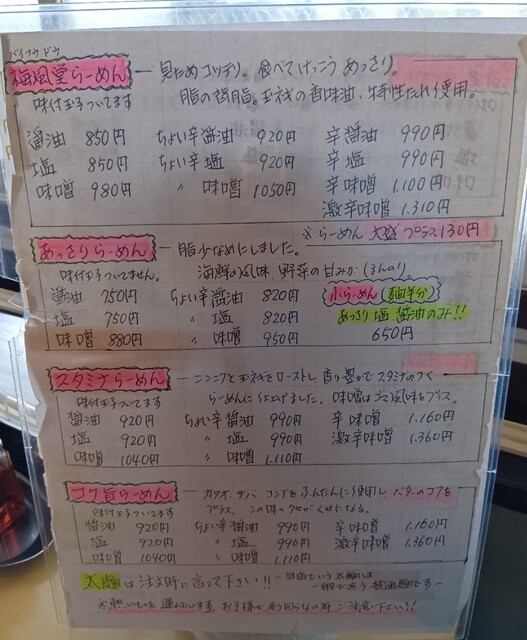 バイフウドウ
梅風堂らーめん ― 見ためコッテリ。食べてけっこうあっさり。
味付玉子ついてます 脂の背脂。玉ネギの香味油、特性たれ使用。
醤油 850円 ちょい辛醤油 920円 辛醤油 990円
塩 850円 ちょい辛塩 920円 辛塩 990円
味噌 980円 〃 味噌 1050円 辛味噌 1.100円
激辛味噌 1.310円
※らーめん 大盛 プラス130円
あっさりらーめん ― 脂少なめにしました。
味付玉子ついてません。 海鮮の風味、野菜の甘みがほんのり。
醤油 750円 ちょい辛醤油 820円 小らーめん(麺半分)
塩 750円 〃 塩 820円 あっさり塩 醤油のみ!!
味噌 880円 〃 味噌 950円 650円
スタミナらーめん ― ニンニクと玉ネギをローストし、香り豊かでスタミナのつく
味付玉子ついてます らーめんに仕上げました。味噌はゴマ風味をプラス。
醤油 920円 ちょい辛醤油 990円 辛味噌 1.160円
塩 920円 〃 塩 990円 激辛味噌 1.360円
味噌 1040円 〃 味噌 1.110円
コク旨らーめん ― カツオ、サバ、コンブをふんだんに使用し、バターのコクを
味付玉子ついてます プラス。この味のクセがくせになる。
醤油 920円 ちょい辛醤油 990円 辛味噌 1.160円
塩 920円 〃 塩 990円 激辛味噌 1.360円
味噌 1040円 〃 味噌 1.110円
太麺は注文時に言って下さい!!
※熱いものを運んでいます。お子様が走り回らない様ご注意下さい!!